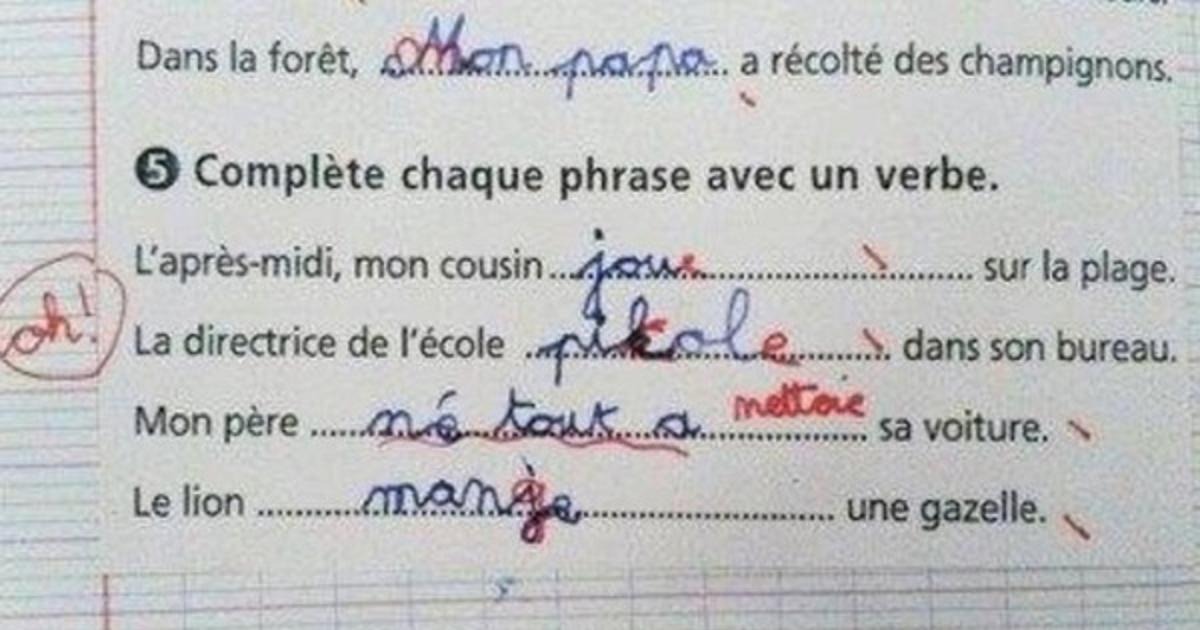 Dans la forêt, Mon papa a récolté des champignons.
5 Complète chaque phrase avec un verbe.
L'après-midi, mon cousin joue sur la plage.
oh! La directrice de l'école pikole dans son bureau.
mettoie
Mon père né tout a sa voiture.
Le lion mange une gazelle.